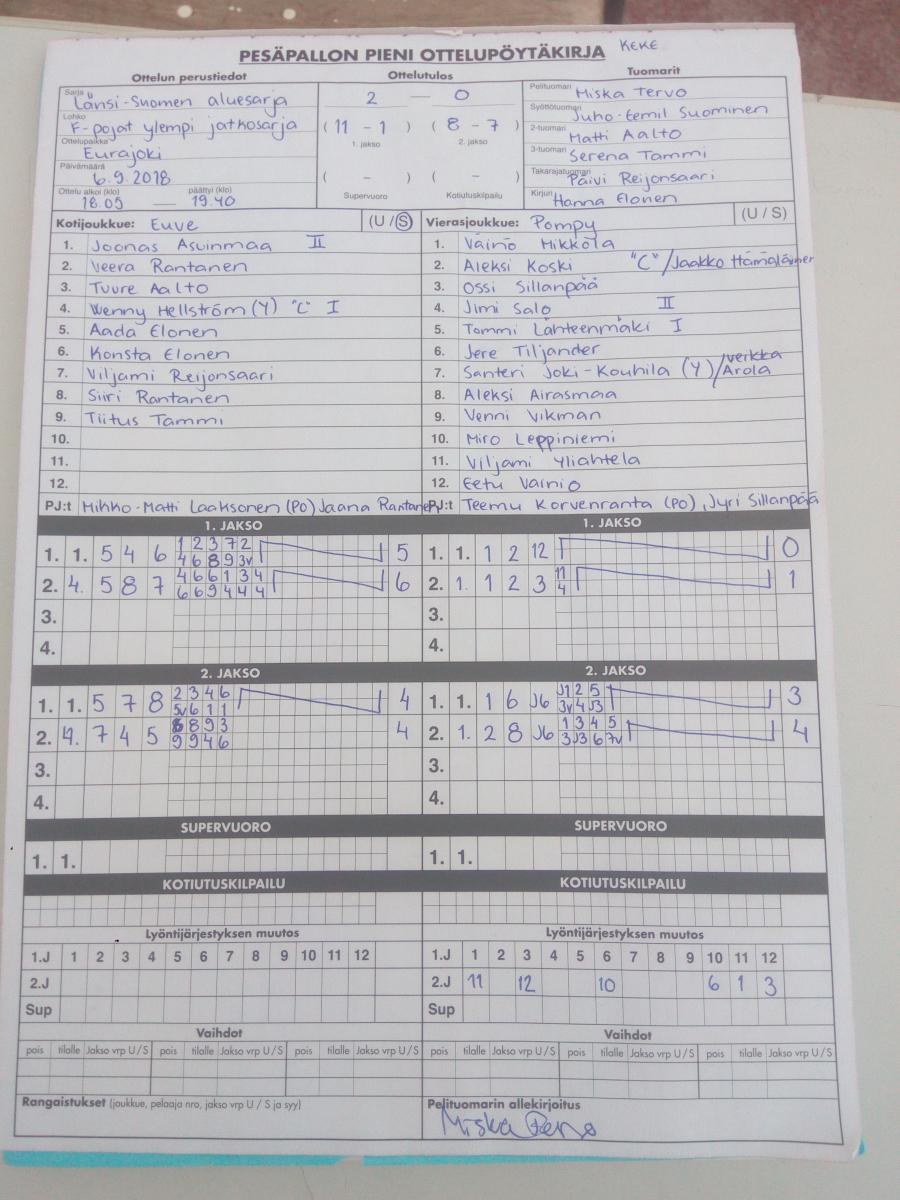 PESÄPALLON PIENI OTTELUPÖYTÄKIRJA KEKE
Ottelun perustiedot Ottelutulos Tuomarit
Sarja Länsi-Suomen aluesarja
Lohko F-pojat ylempi jatkosarja
Ottelupaikka Eurajoki
Päivämäärä 6.9.2018
Ottelu alkoi (klo) 18.05 — päättyi (klo) 19.40
2 — 0
( 11 - 1 ) ( 8 - 7 )
1. jakso 2. jakso
( - ) ( - )
Supervuoro Kotiutuskilpailu
Pelituomari Miska Tervo
Syöttötuomari Juho-Eemil Suominen
2-tuomari Matti Aalto
3-tuomari Serena Tammi
Takarajatuomari Päivi Reijonsaari
Kirjuri Hanna Elonen
Kotijoukkue: Euve (U/S)
1. Joonas Asuinmaa II
2. Veera Rantanen
3. Tuure Aalto
4. Wenny Hellström (Y) "C" I
5. Aada Elonen
6. Konsta Elonen
7. Viljami Reijonsaari
8. Siiri Rantanen
9. Tiitus Tammi
10.
11.
12.
PJ:t Mikko-Matti Laaksonen (PO) Jaana Rantanen
Vierasjoukkue: Pompy (U / S)
1. Väinö Mikkola
2. Aleksi Koski "C"/Jaakko Hämäläinen
3. Ossi Sillanpää
4. Jimi Salo II
5. Tommi Lähteenmäki I
6. Jere Tiljander
7. Santeri Joki-Kouhila (Y)/Verikka Arola
8. Aleksi Airasmaa
9. Venni Vikman
10. Miro Leppiniemi
11. Viljami Yliahtela
12. Eetu Vainio
PJ:t Teemu Korvenranta (PO), Jyri Sillanpää
1. JAKSO
1. 1. 5 4 6 1 2 3 7 2 5
4 6 8 9 3v
2. 4. 5 8 7 4 6 6 1 3 4 6
6 6 9 4 4 4
3.
4.
1. JAKSO
1. 1. 1 2 12 0
2. 1. 1 2 3 11 1
4
3.
4.
2. JAKSO
1. 1. 5 7 8 2 3 4 6 4
5v 6 1 1
2. 4. 7 4 5 8 8 9 3 4
9 9 4 6
3.
4.
2. JAKSO
1. 1. 1 6 J6 J1 2 5 3
3v 4 J3
2. 1. 2 8 J6 1 3 4 5 4
3 J3 6 7v
3.
4.
SUPERVUORO
1. 1.
SUPERVUORO
1. 1.
KOTIUTUSKILPAILU
KOTIUTUSKILPAILU
Lyöntijärjestyksen muutos
1.J 1 2 3 4 5 6 7 8 9 10 11 12
2.J
Sup
Lyöntijärjestyksen muutos
1.J 1 2 3 4 5 6 7 8 9 10 11 12
2.J 11 12 10 6 1 3
Sup
Vaihdot
pois tilalle Jakso vrp U / S pois tilalle Jakso vrp U / S pois tilalle Jakso vrp U / S
Vaihdot
pois tilalle Jakso vrp U / S pois tilalle Jakso vrp U / S pois tilalle Jakso vrp U / S
Rangaistukset (joukkue, pelaaja nro, jakso vrp U / S ja syy)
Pelituomarin allekirjoitus
Miska